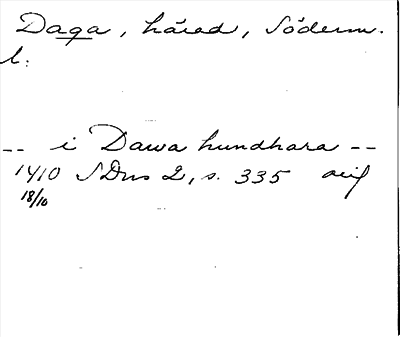 Daga, härad, Söderm.
l.
-- i Dawa hundhara --
1410 SDns 2, s. 335 avif
18/10